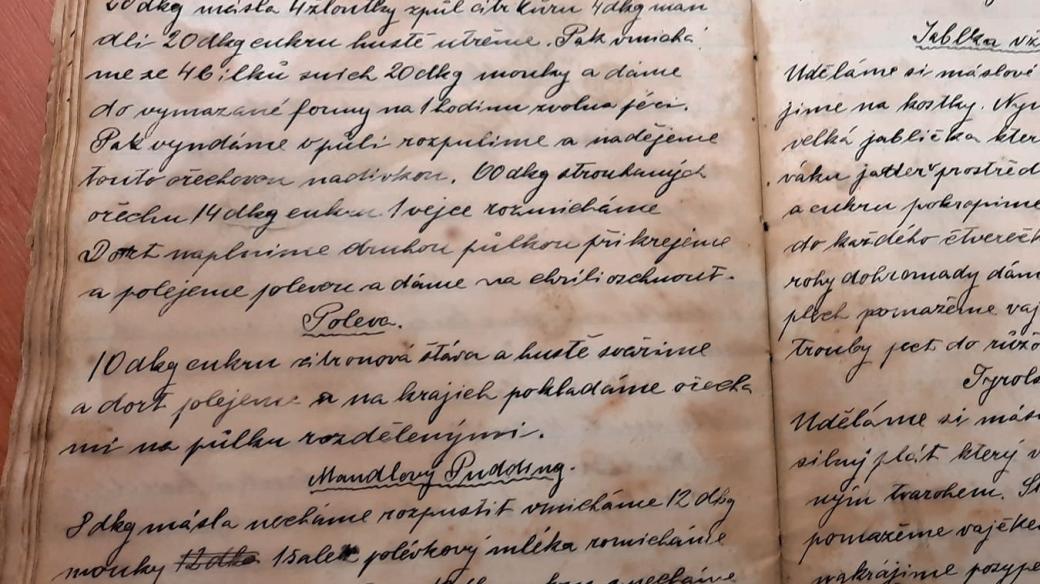 20dkg másla 4 žloutky způl citr kůru 4dkg man
dlí 20dkg cukru hustě utřeme. Pak vmíchá
me ze 4 bílků sních 20dkg mouky a dáme
do vymazané formy na 1 hodinu zvolna péci.
Pak vyndáme v půli rozpulíme a nadějeme
touto ořechovou nadívkou. 60dkg strouhaných
ořechu 14dkg cukru 1 vejce rozmícháme
Dort naplníme druhou půlkou přikrejeme
a polejeme polevou a dáme na chvíli oschnout.
Poleva.
10dkg cukru citronová šťáva a hustě svaříme
a dort polejeme a na krajích pokládáme ořecha
mi na půlku rozdělenými.
Mandlový Pudding.
8dkg másla necháme rozpustit vmícháme 12 dkg
mouky 12 dkg 1 šálek polévkový mléka rozmícháme
necháme
Jablka
Uděláme si máslové
jíme na kostky.
velká jablíčka kter
váku jadter prostřed
a cukru pokrapíme
do každého čtvereč
rohy dohromady dám
plech pomažeme vaj
trouby pect do růžo
Tyrols
Uděláme si másl
silný plát který v
ným tvarohem.
pomažeme vajíčkem
nakrájíme posype